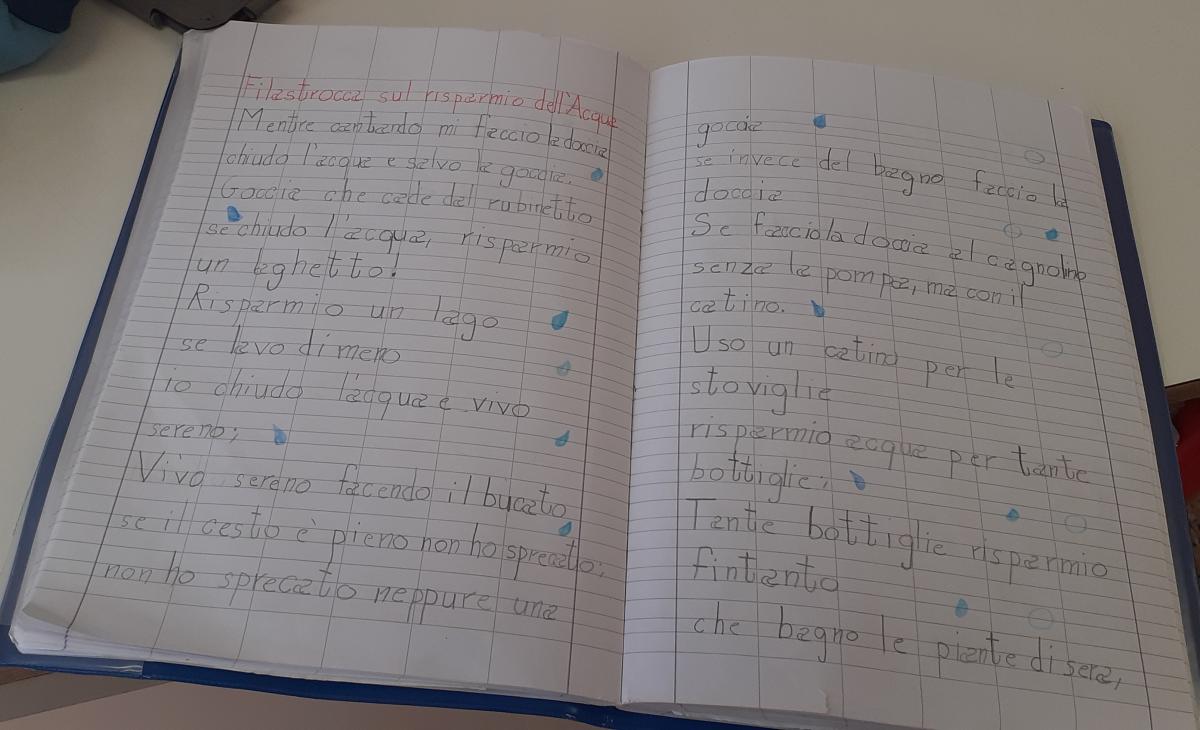 Filastrocca sul risparmio dell'Acqua
Mentre cantando mi faccio la doccia
chiudo l'acqua e salvo la goccia.
Goccia che cade dal rubinetto
se chiudo l'acqua, risparmio
un laghetto!
Risparmio un lago
se lavo di meno
io chiudo l'acqua e vivo
sereno;
Vivo sereno facendo il bucato
se il cesto è pieno non ho sprecato;
non ho sprecato neppure una
goccia
se invece del bagno faccio la
doccia
Se faccio la doccia al cagnolino
senza la pompa, ma con il
catino.
Uso un catino per le
stoviglie
risparmio acqua per tante
bottiglie;
Tante bottiglie risparmio
fintanto
che bagno le piante di sera,